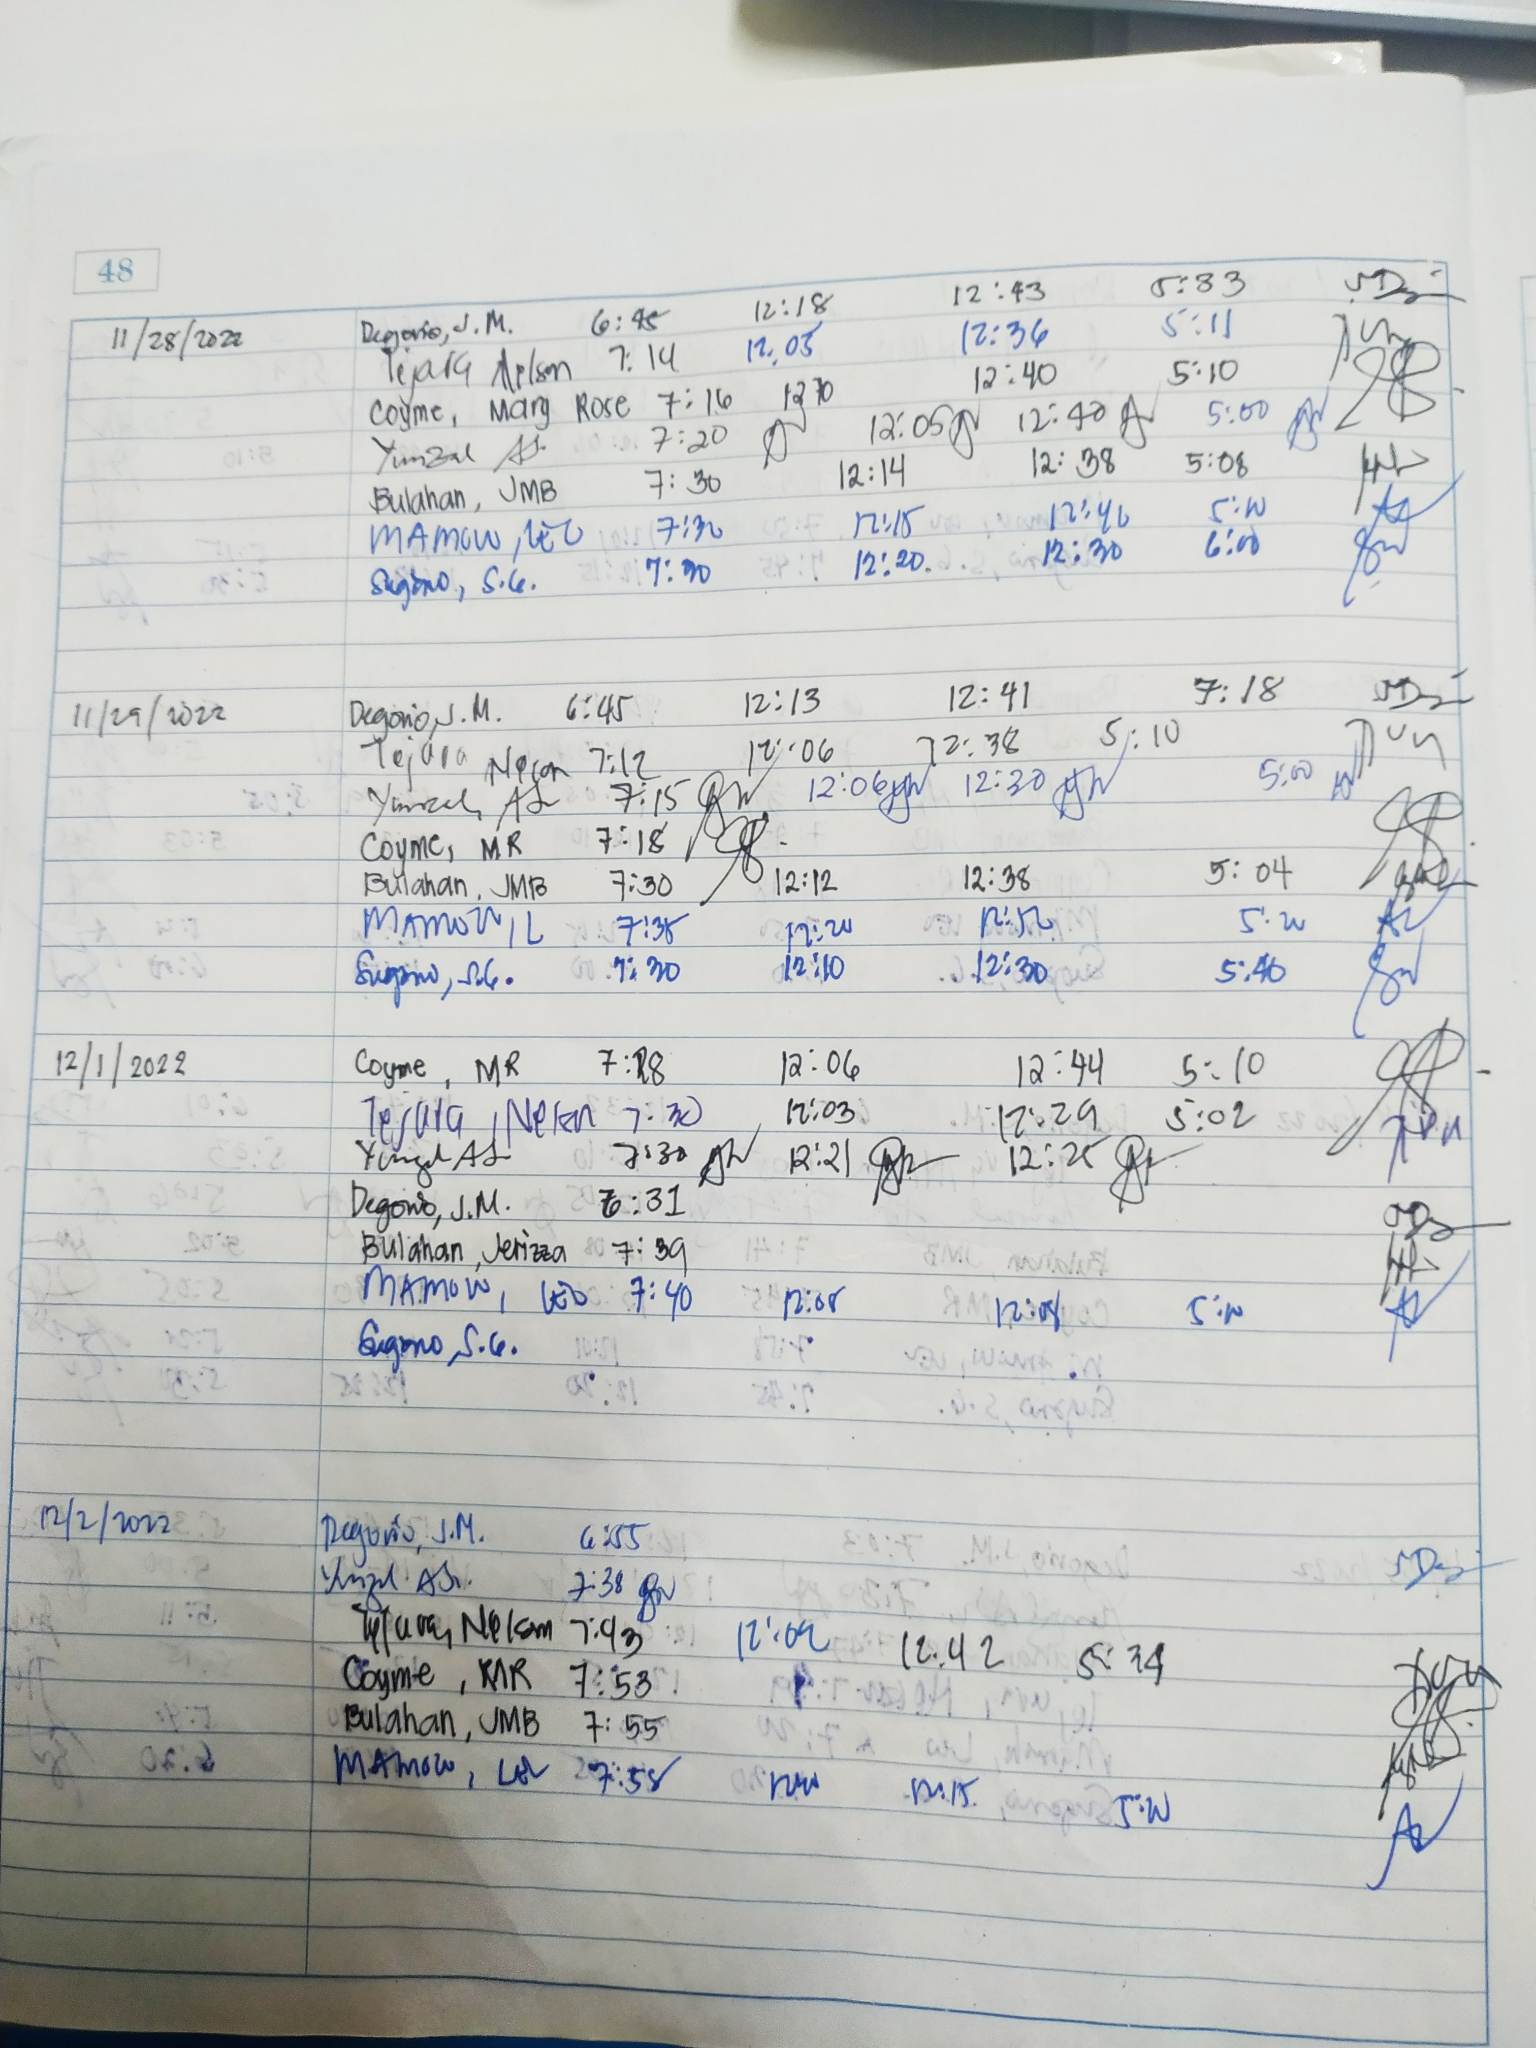 48
11/28/2022 Degorio, J.M. 6:45 12:18 12:43 5:33
Tejara Nelson 7:14 12:05 12:36 5:11
Coyme, Mary Rose 7:16 12:40 5:10
Yunzal AS. 7:20 12:05 12:40 5:00
Bulahan, JMB 7:30 12:14 12:38 5:08
MAMOW, LEO 7:30 12:15 5:20
Sugono, S.G. 7:30 12:20. 12:30 6:00
11/29/2022 Degorio, J.M. 6:45 12:13 12:41 7:18
Tejara Nelson 7:12 12:06 12:38 5:10
Yunzal, AS 7:15 12:06 12:30 5:00
Coyme, MR 7:18
Bulahan, JMB 7:30 12:12 12:38 5:04
MAMOW, L 7:35 12:20 12:52 5:20
Sugono, S.G. 7:30 12:10 12:30 5:40
12/1/2022 Coyme, MR 7:28 12:06 12:44 5:10
Tejara, Nelson 7:30 12:03 12:29 5:02
Yunzal AS 7:30 12:21 12:25
Degorio, J.M. 6:31
Bulahan, Jerizza 7:39
MAMOW, LEO 7:40 12:05 5:20
Sugono, S.G.
12/2/2022 Degorio, J.M. 6:55
Yunzal AS. 7:38
Tejara, Nelson 7:43 12:09 12:42 5:34
Coyme, MR 7:53
Bulahan, JMB 7:55
MAMOW, LEO 7:58 12:15 5:20